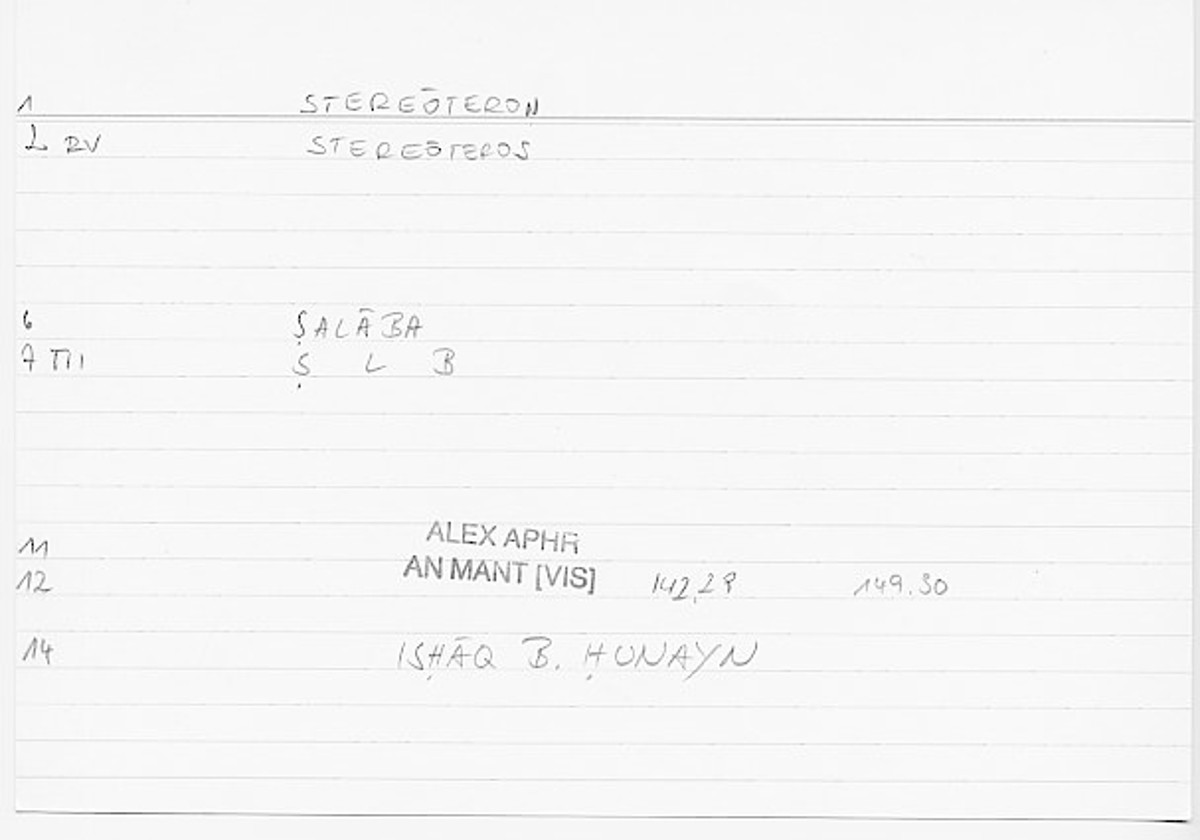 1 STEREŌTERON
2 RV STEREŌTEROS
6 ṢALĀBA
7 TI1 Ṣ L B
11 ALEX APHR
12 AN MANT [VIS] 142,29 149.30
14 ISḤĀQ B. ḤUNAYN